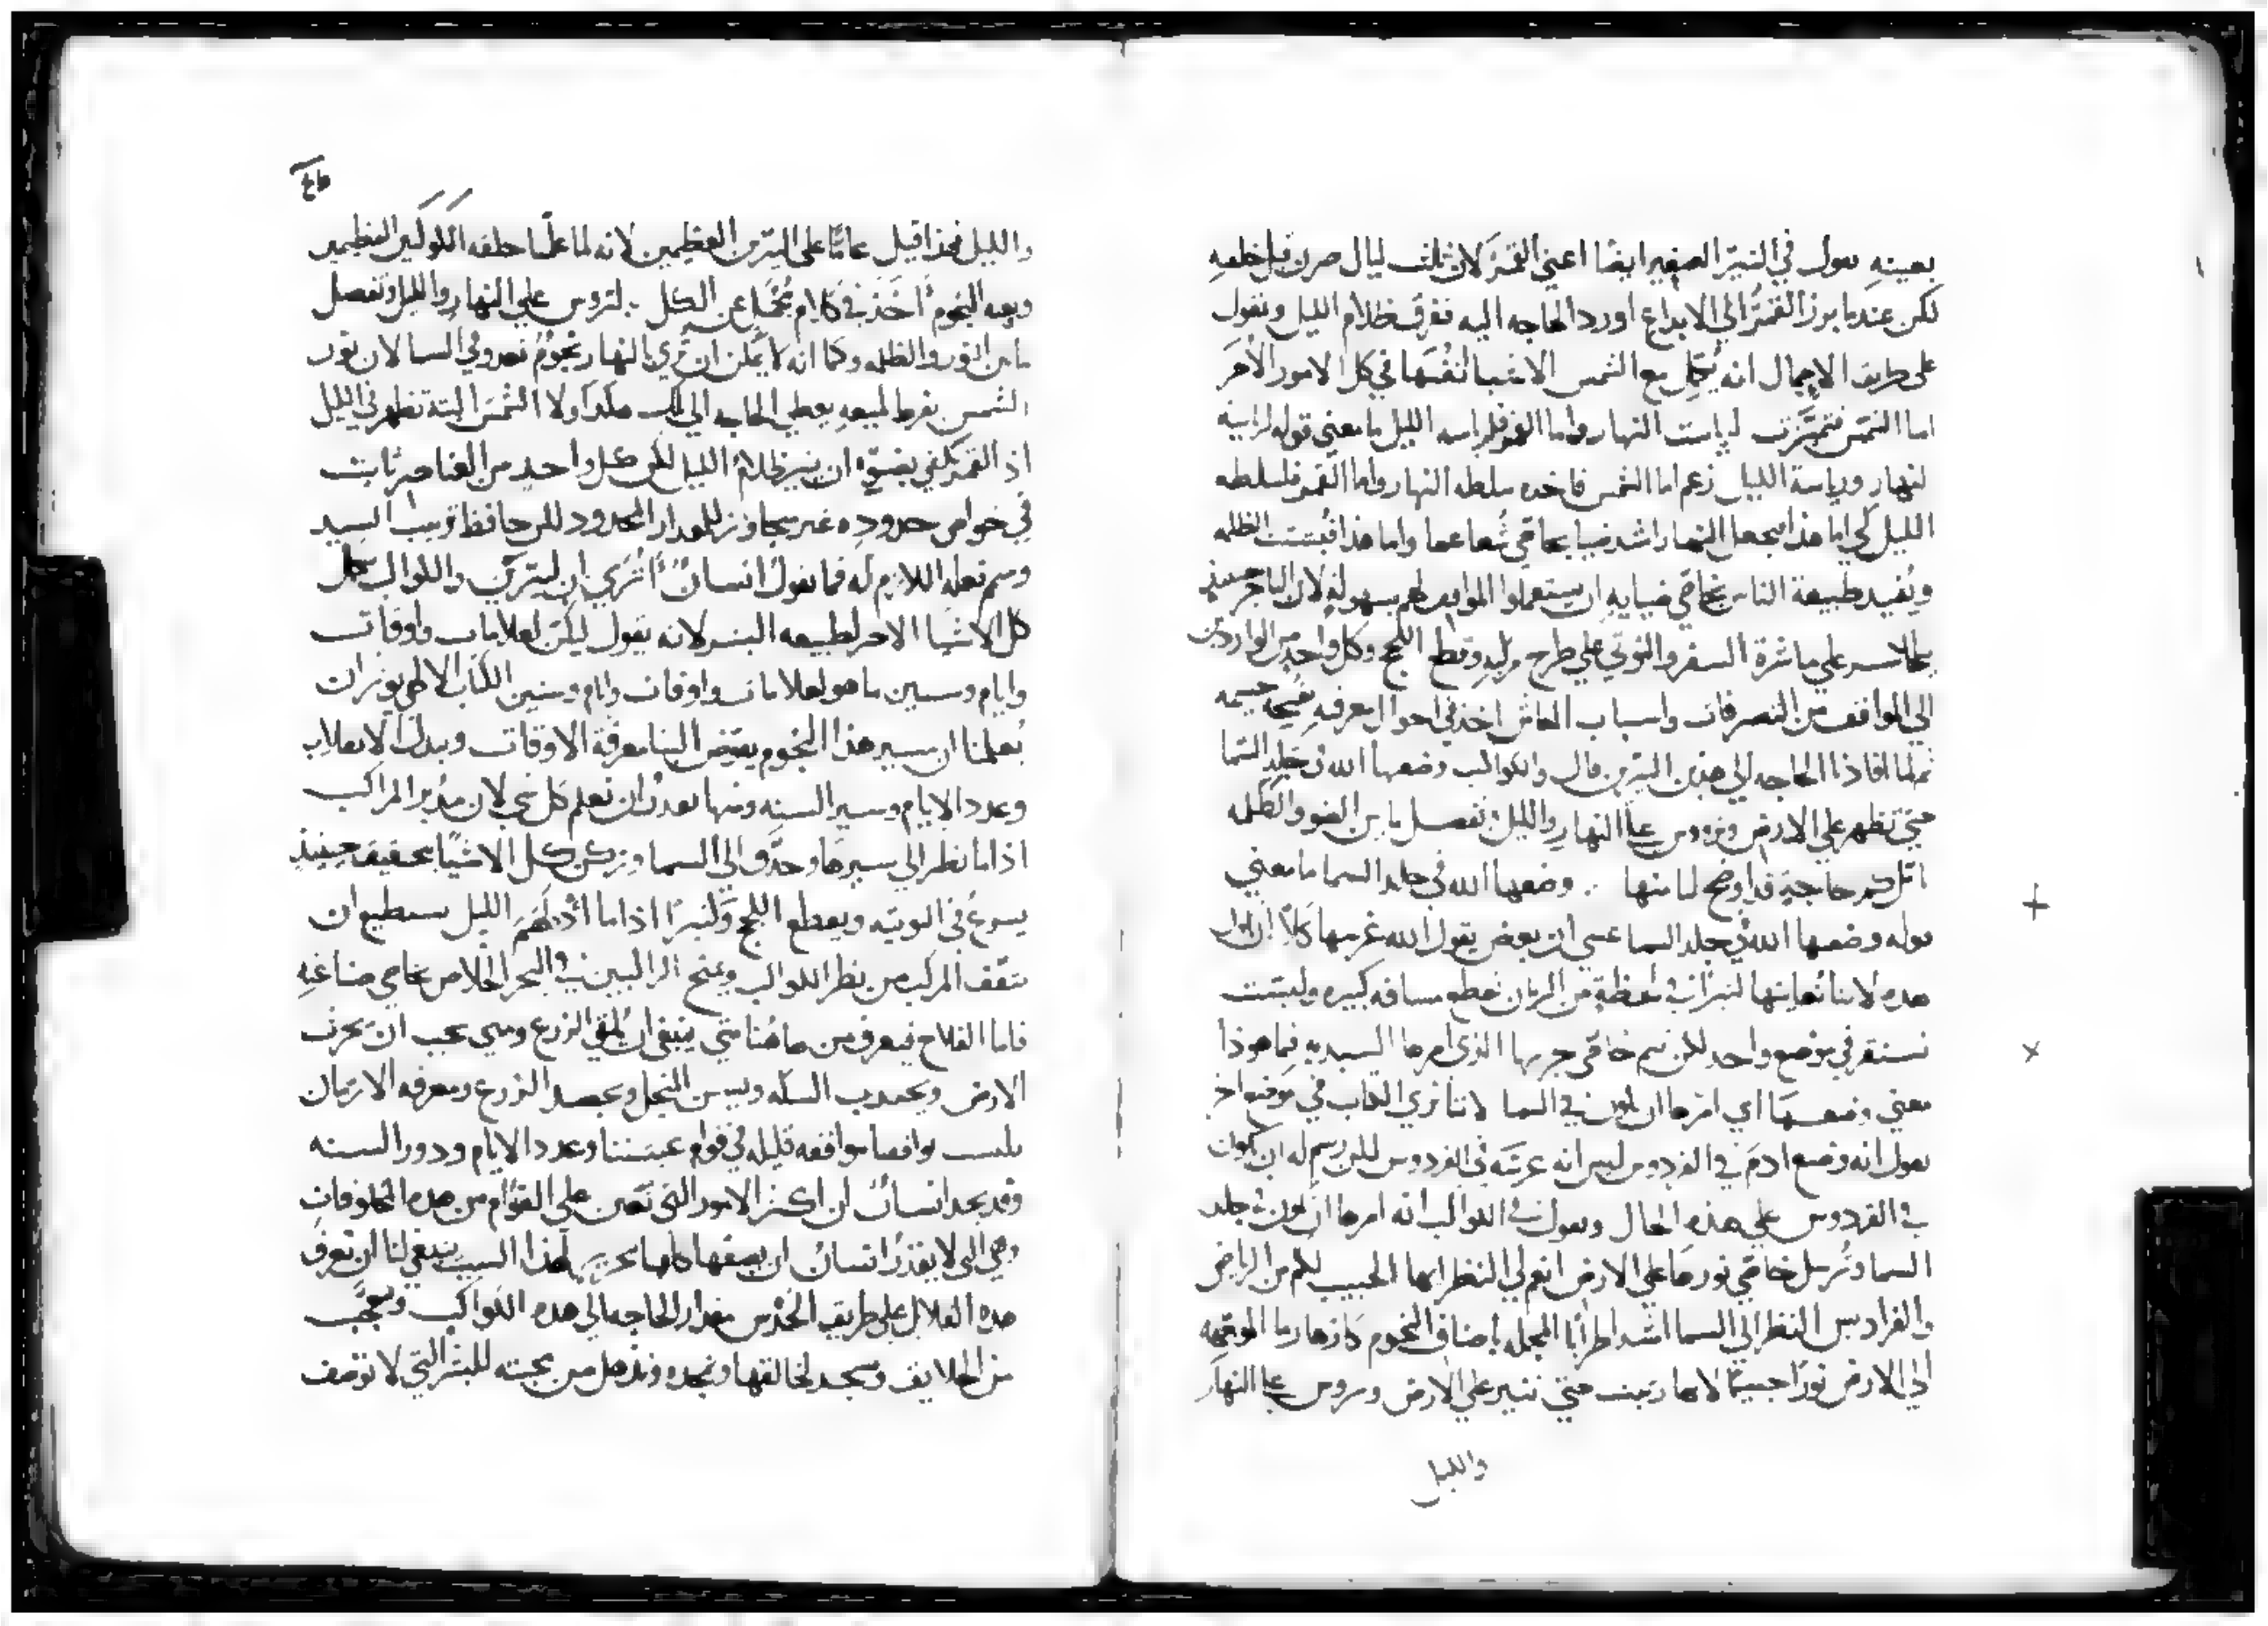 بعينهِ نقول في النيّر الصغير ايضًا اعني القمَر لان ثلث ليال صرن قبل خلقهِ
لكن عندما برز القمرُ الي الابداع اورد الحاجه اليه ففرق ظلام الليل ونقول
علي طريق الاجمال انه يُكمِل مع الشمس الاشيا انفُسَها في كل الامور الاخَر
اما الشمَس فتميَّزت لرياست النهار واما القمَر فلراسه الليل ما معني قوله لرآيسه
لنهار ورياسة الليل زعم اما الشمس فاخده سلطه النهار واما القمَر فلسلطه
الليل لكي اما هذا يجعل النهار اشد ضيا بخاصّي شُعاعها واما هذا فُيشتت الظلمه
ويُفيد طبيعة الناس بخاصّي ضيايهِ ان يستعملوا لهم بسهولهٍ لان التاجر حينيذٍ
علي ماشرة السفر والنوتي علي طرح وقطع اللجج وكل واحدٍ من الواردين
الي المواقف من التصرفات واسباب المعاش اخذ في احوال معرفهِ جسيمه
ثم لما افاذنا الحاجه الي هذين النيّرين قال والكواكب وضعها الله في جلد السَما
حتي تظهر علي الارض وتروس علي النهار والليل وتفصل ما بين الضو والظلمه
حاجيةٍ قد اوضح لنا منها ؞ وضعها الله في جلد السما ما معني
قوله وضعها الله في جلد السما عسي ان بعض يقول الله غرسها كلّا
هده لاننا نُعاينها في لحظةٍ من الزمان مسافه كبيره وليسَت
تستقر في موضع واحد لكن خاصّي جريها الذي امرها السيد بهِ فما هو ذا
معني وضعَها اي امرَها ان تكون في السما لاننا نري الكتاب في موضع اخر
يقول انه وضع ادمَ في الفردوس ليس انه غرسَه في الفردوس لكن رسِم له ان يكون
في الفردوس علي هذه الحال ونقول في الكواكب انه امرها ان تكون في جلد
السما وتُرسل خاصّي نورها علي الارض انعم لي النظر ايها الحبيب
والفراديس النظر الي السما اشد اطرابًا المجمله باصناف النجوم كازهار ما
الي الارض نورًا جسيمًا لانها رتبت حتي تنير علي الارض وتروس علي النهار
والليل
والليل فهذا قيل عامًّا علي النيّرين العظيمين لانه لما علّمنا خلقه الكوكَبين العظيمين
وبعده النجوم اخَذ في كلامٍ مُجمَلٍ عن الكل ؞ لتروس علي النهار والليل وتفصل
ما بين النور والظلمه وكما انه لا يمكن ان تُري بالنهار نجومٌ تعدو في السما لان نور
الشمس بفرط لميعهِ يغطي هكذا ولا الشمسَ البتة تظهر في الليل
اذ القمر يكفي بضوّهِ ان ينير ظلامُ الليل لكن كل واحدٍ من العناصر ثابت
في خواص حدودِه غير متجاوزٍ للمقدار المحدود لكن حافظ ترتيب السيد
ورسم فعله اللازم له فما يقول انسانٌ اتُري ان النيّرين والكواكب تكمل
كل الاشيا الاخر لطبيعه البشر لانه يقول ليكن لعلامات واوقات
وايام وسنين ما هو لعلامات واوقات وايام وسنين الكتاب الالهي يوثر ان
يُعلمنا ان مسير هذه النجوم يفيض الينا معرفة الاوقات وتبدل الانقلاب
وعدد الايام وسير السنه ومنها نقدرُ ان نعلم كل شي لان مدبّر المراكب
اذا ما نظر الي سيرها وحدّق الي السما كل الاشيا بحقيقه حينيذٍ
يسرعُ في النوتيه ويقطع اللجج وكثيرًا اذا ما ادلهَم الليل يستطيع ان
يثقف المركب من نظر الكواكب ويمنح الراكبين في البحر الخلاص بخاصي صناعتهِ
فاما الفلاح فيعرف من هاهُنا متي ينبغي ان يُلقي الزرع ومتي يجب ان يحرث
الارض ويحصد الزرع ومعرفه الازمان
موافقه قليله في قوام عيشتنا وعدد الايام ودور السنه
وقد يجد انسان ان اكثر الامور التي تعين علي القوام من هذه المخلوقات
وهي التي لا يقدرُ انسانٌ ان يصفها كلها لهذا السبب ينبغي لنا ان نعرف
هذه القلايل علي طريق الحَدْس مقدار الحاجه الي هذه الكواكب ونعجَب
من الخلايق ونسجد لخالقها ونمجده ونذهل من محبته للبشر التي لا توصف